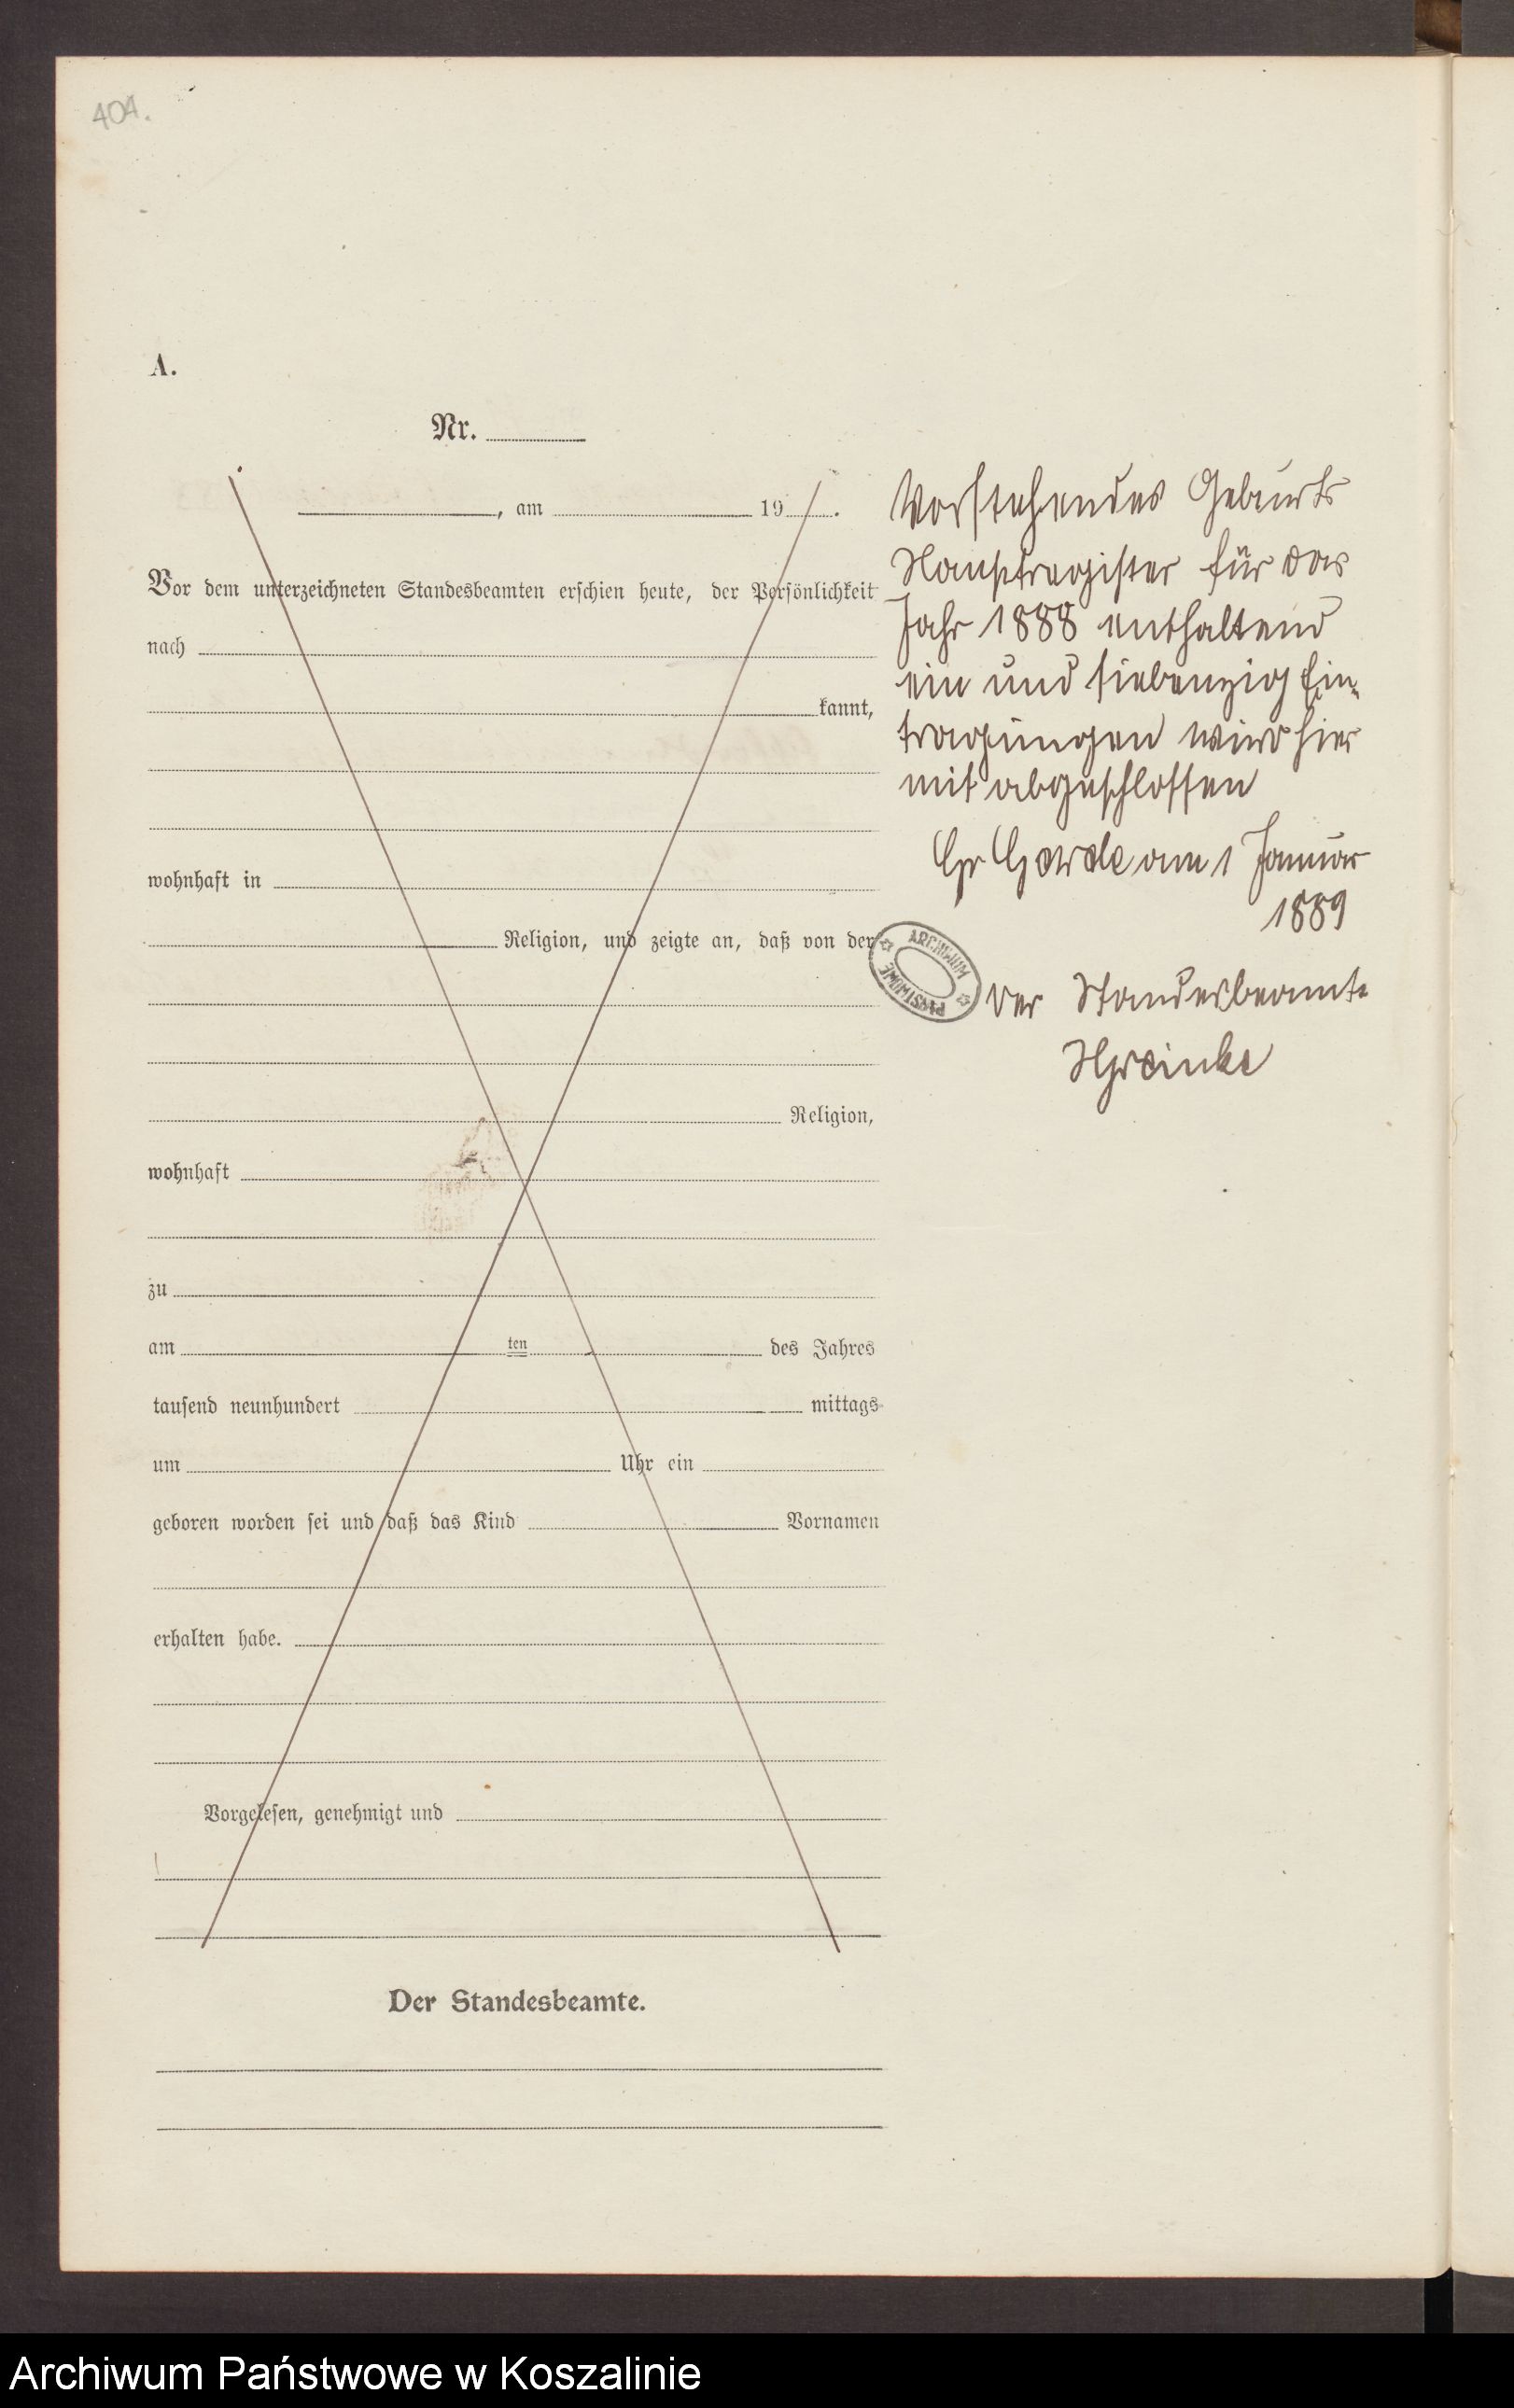 404.
A.
Nr.
, am 19 .
Vor dem unterzeichneten Standesbeamten erschien heute, der Persönlichkeit
nach
kannt,
wohnhaft in
Religion, und zeigte an, daß von der
Religion,
wohnhaft
zu
am ten des Jahres
tausend neunhundert mittags
um Uhr ein
geboren worden sei und daß das Kind Vornamen
erhalten habe.
Vorgelesen, genehmigt und
Der Standesbeamte.
Vorstehendes Geburts
Hauptregister für das
Jahr 1888 enthaltend
ein und siebenzig Ein-
tragungen wird hier
mit abgeschlossen
Gr Garde am 1 Januar
1889
ARCHIWUM
PAŃSTWOWE
Der Standesbeamte
Archiwum Państwowe w Koszalinie